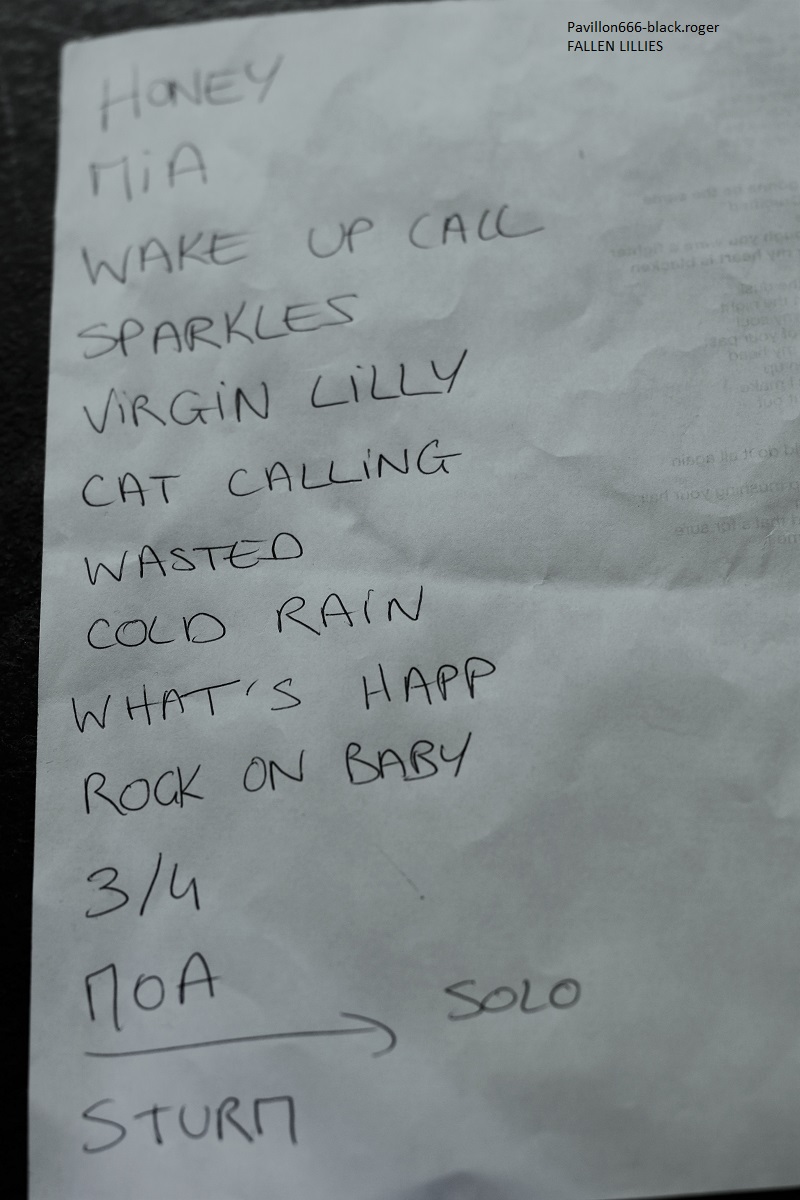 Pavillon666-black.roger
FALLEN LILLIES
HONEY
MiA
WAKE UP CALL
SPARKLES
ViRGiN LiLLY
CAT CALLiNG
WASTED
COLD RAiN
WHAT'S HAPP
ROCK ON BABY
3/4
MOA
→ SOLO
STURM